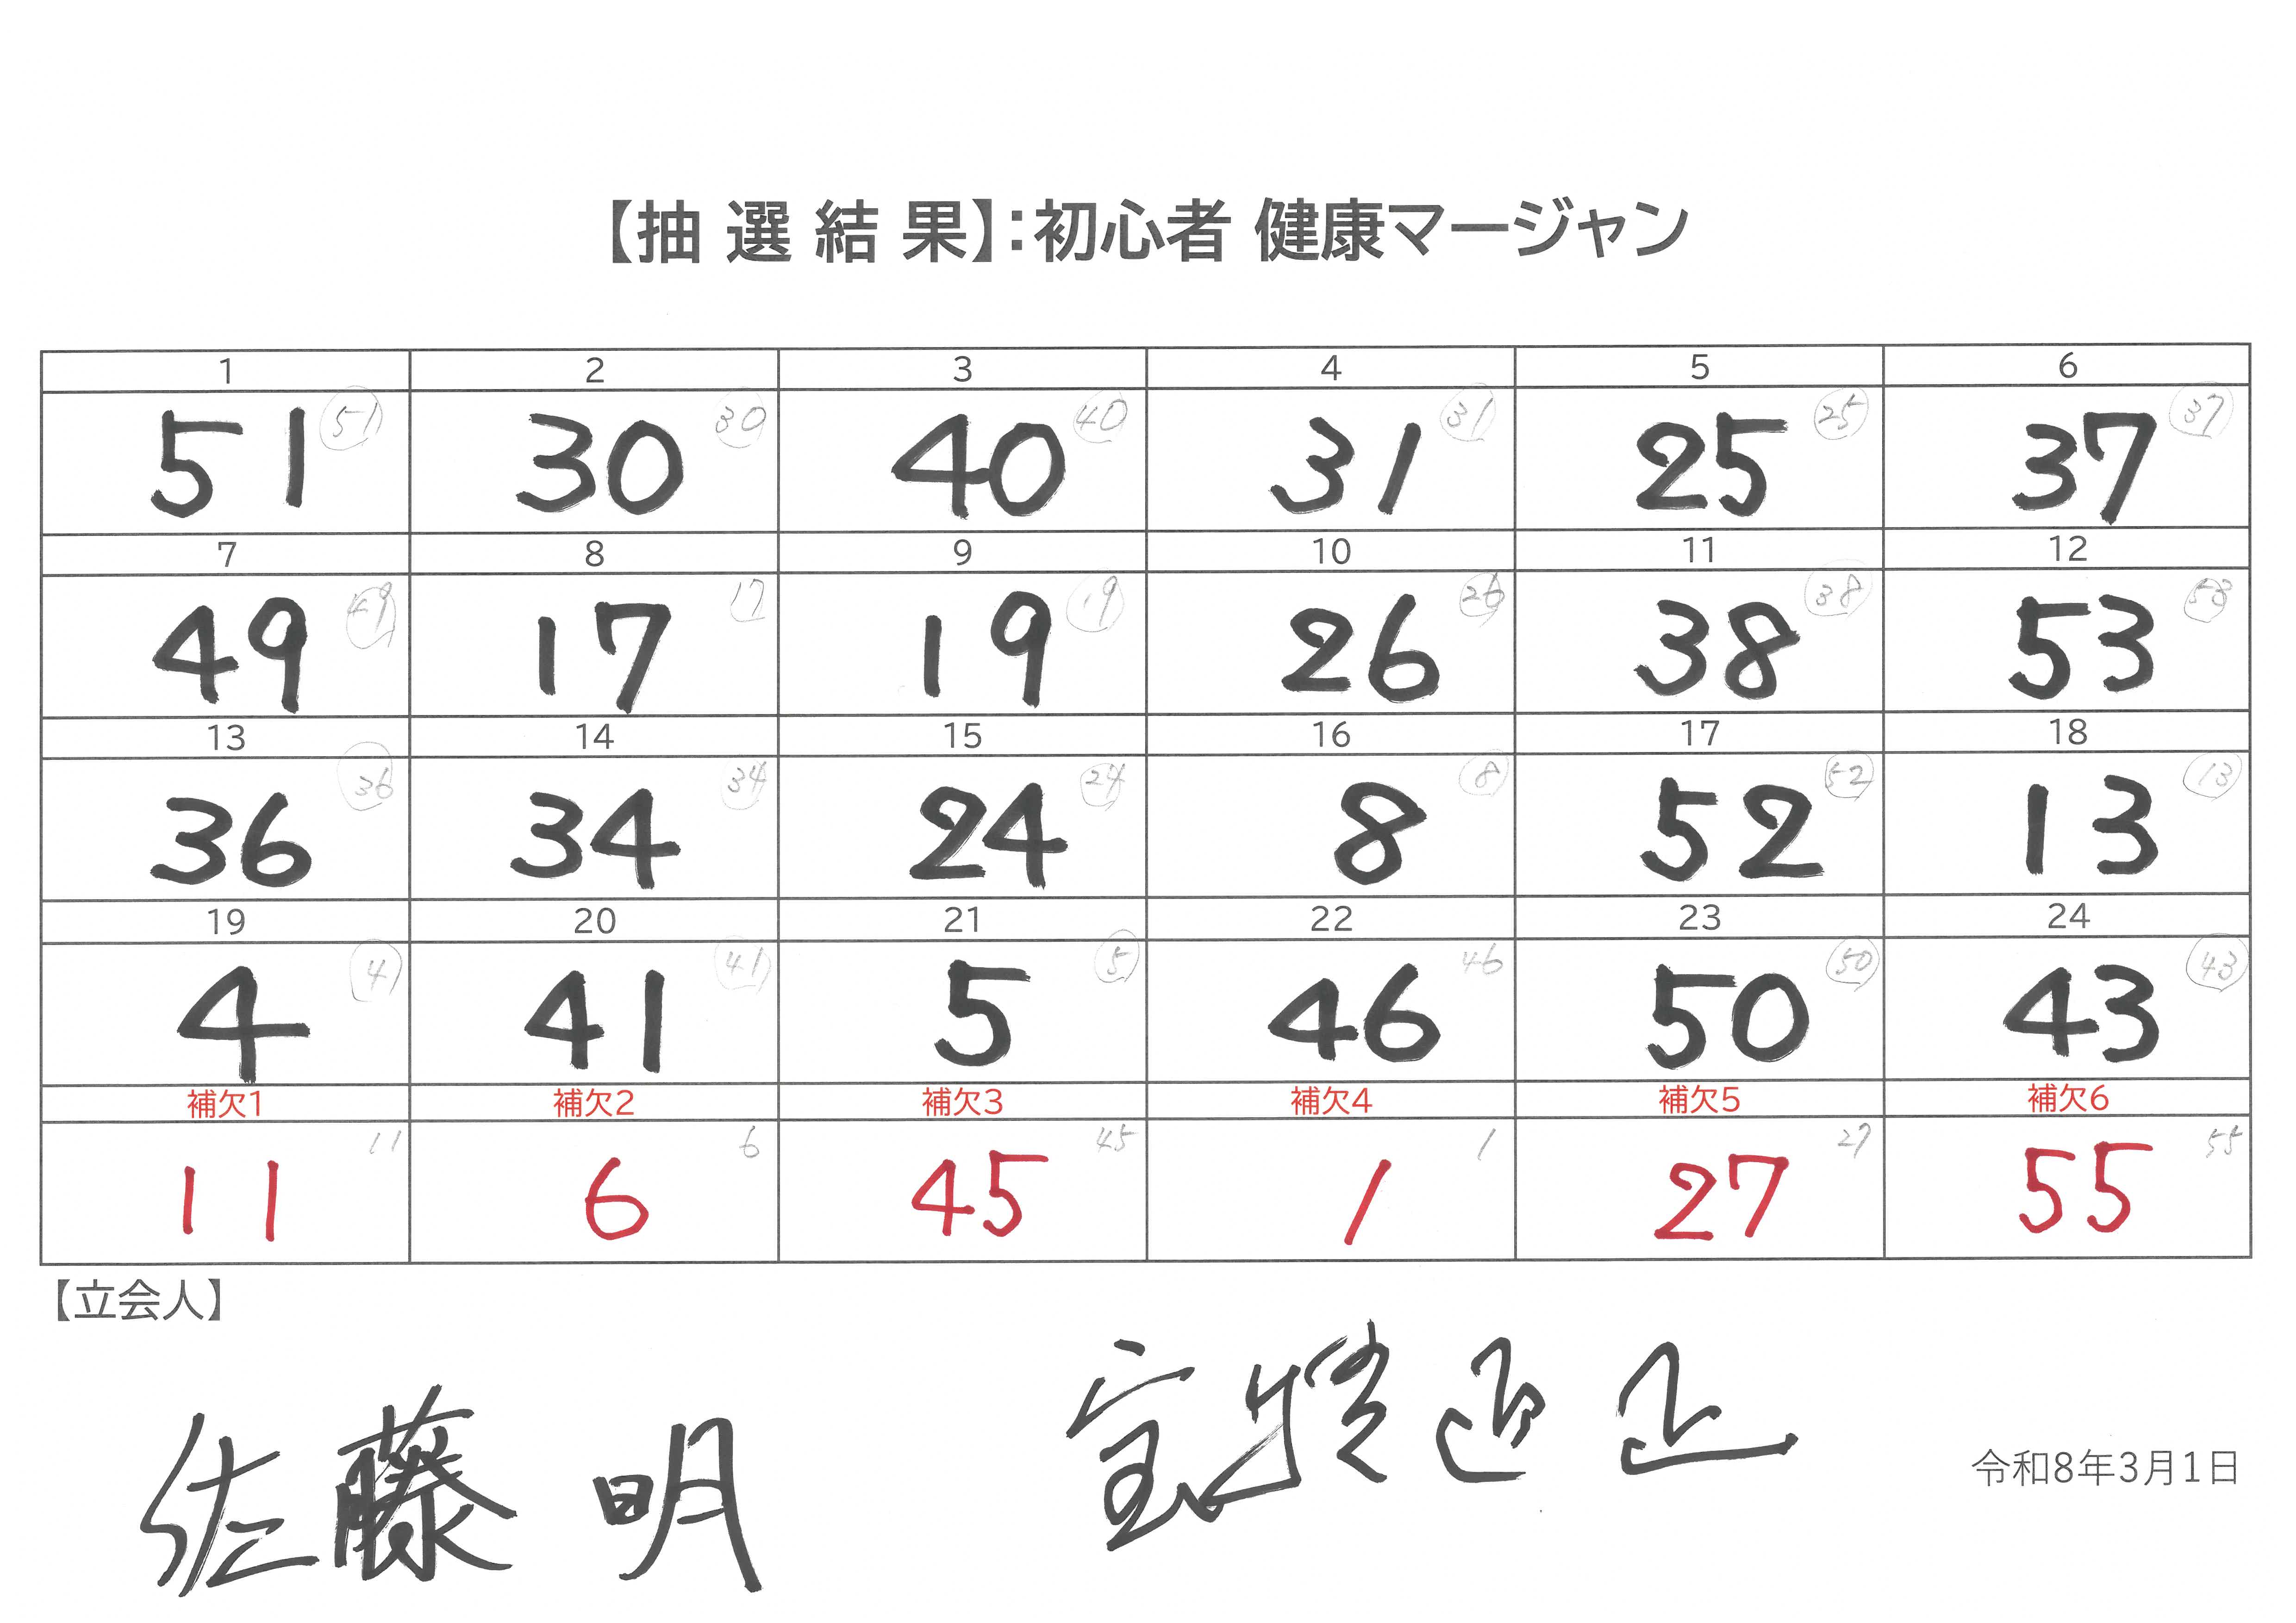 【抽 選 結 果】：初心者 健康マージャン
1 2 3 4 5 6
51 51 30 30 40 40 31 31 25 25 37 37
7 8 9 10 11 12
49 49 17 17 19 19 26 26 38 38 53 53
13 14 15 16 17 18
36 36 34 34 24 24 8 8 52 52 13 13
19 20 21 22 23 24
4 4 41 41 5 5 46 46 50 50 43 43
補欠1 補欠2 補欠3 補欠4 補欠5 補欠6
11 11 6 6 45 45 1 1 27 27 55 55
【立会人】
佐藤 明
令和8年3月1日